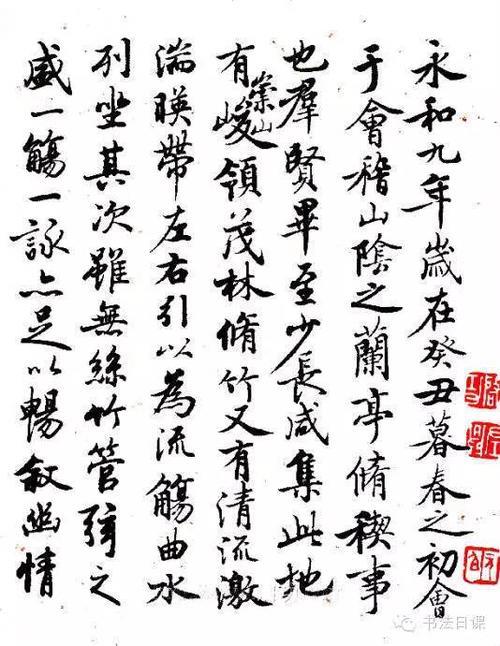 永和九年歲在癸丑暮春之初會
于會稽山陰之蘭亭脩稧事
也羣賢畢至少長咸集此地
有崇山峻領茂林脩竹又有清流激
湍暎帶左右引以為流觴曲水
列坐其次雖無絲竹管弦之
盛一觴一詠亦足以暢敘幽情
书法日课